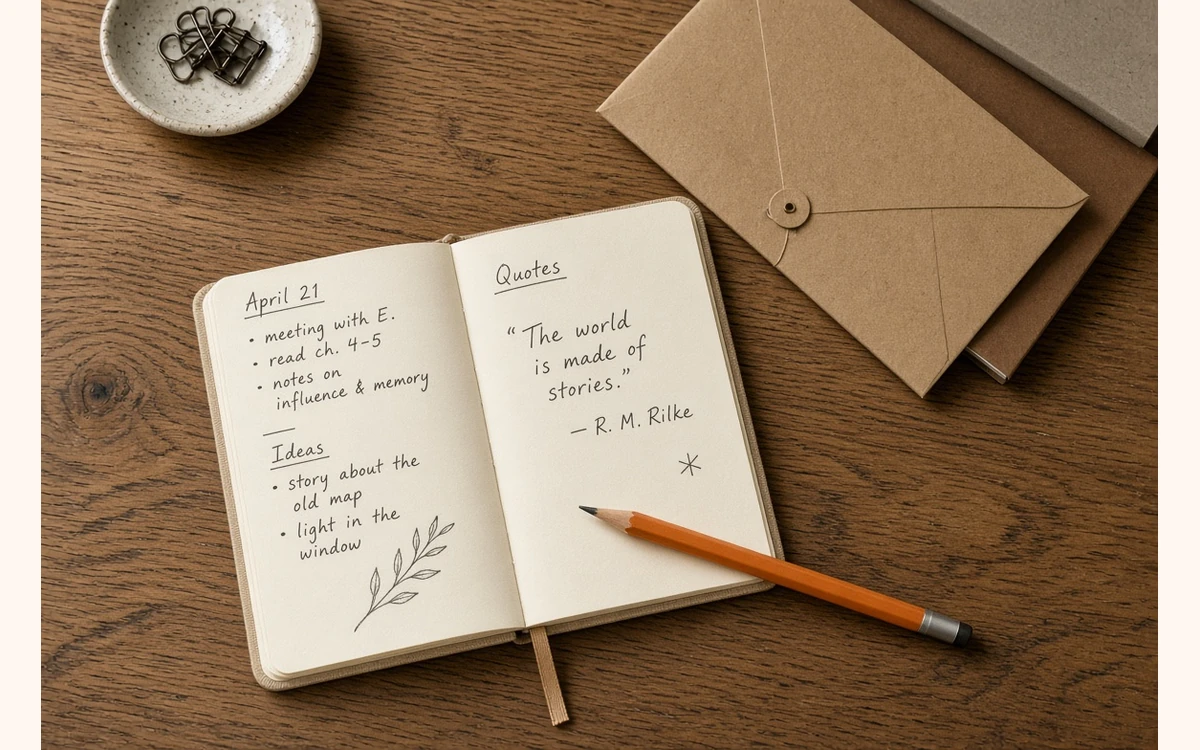 April 21
• meeting with E.
• read ch. 4-5
• notes on
influence & memory
Ideas
• story about the
old map
• light in the
window
Quotes
“The world
is made of
stories.”
— R. M. Rilke